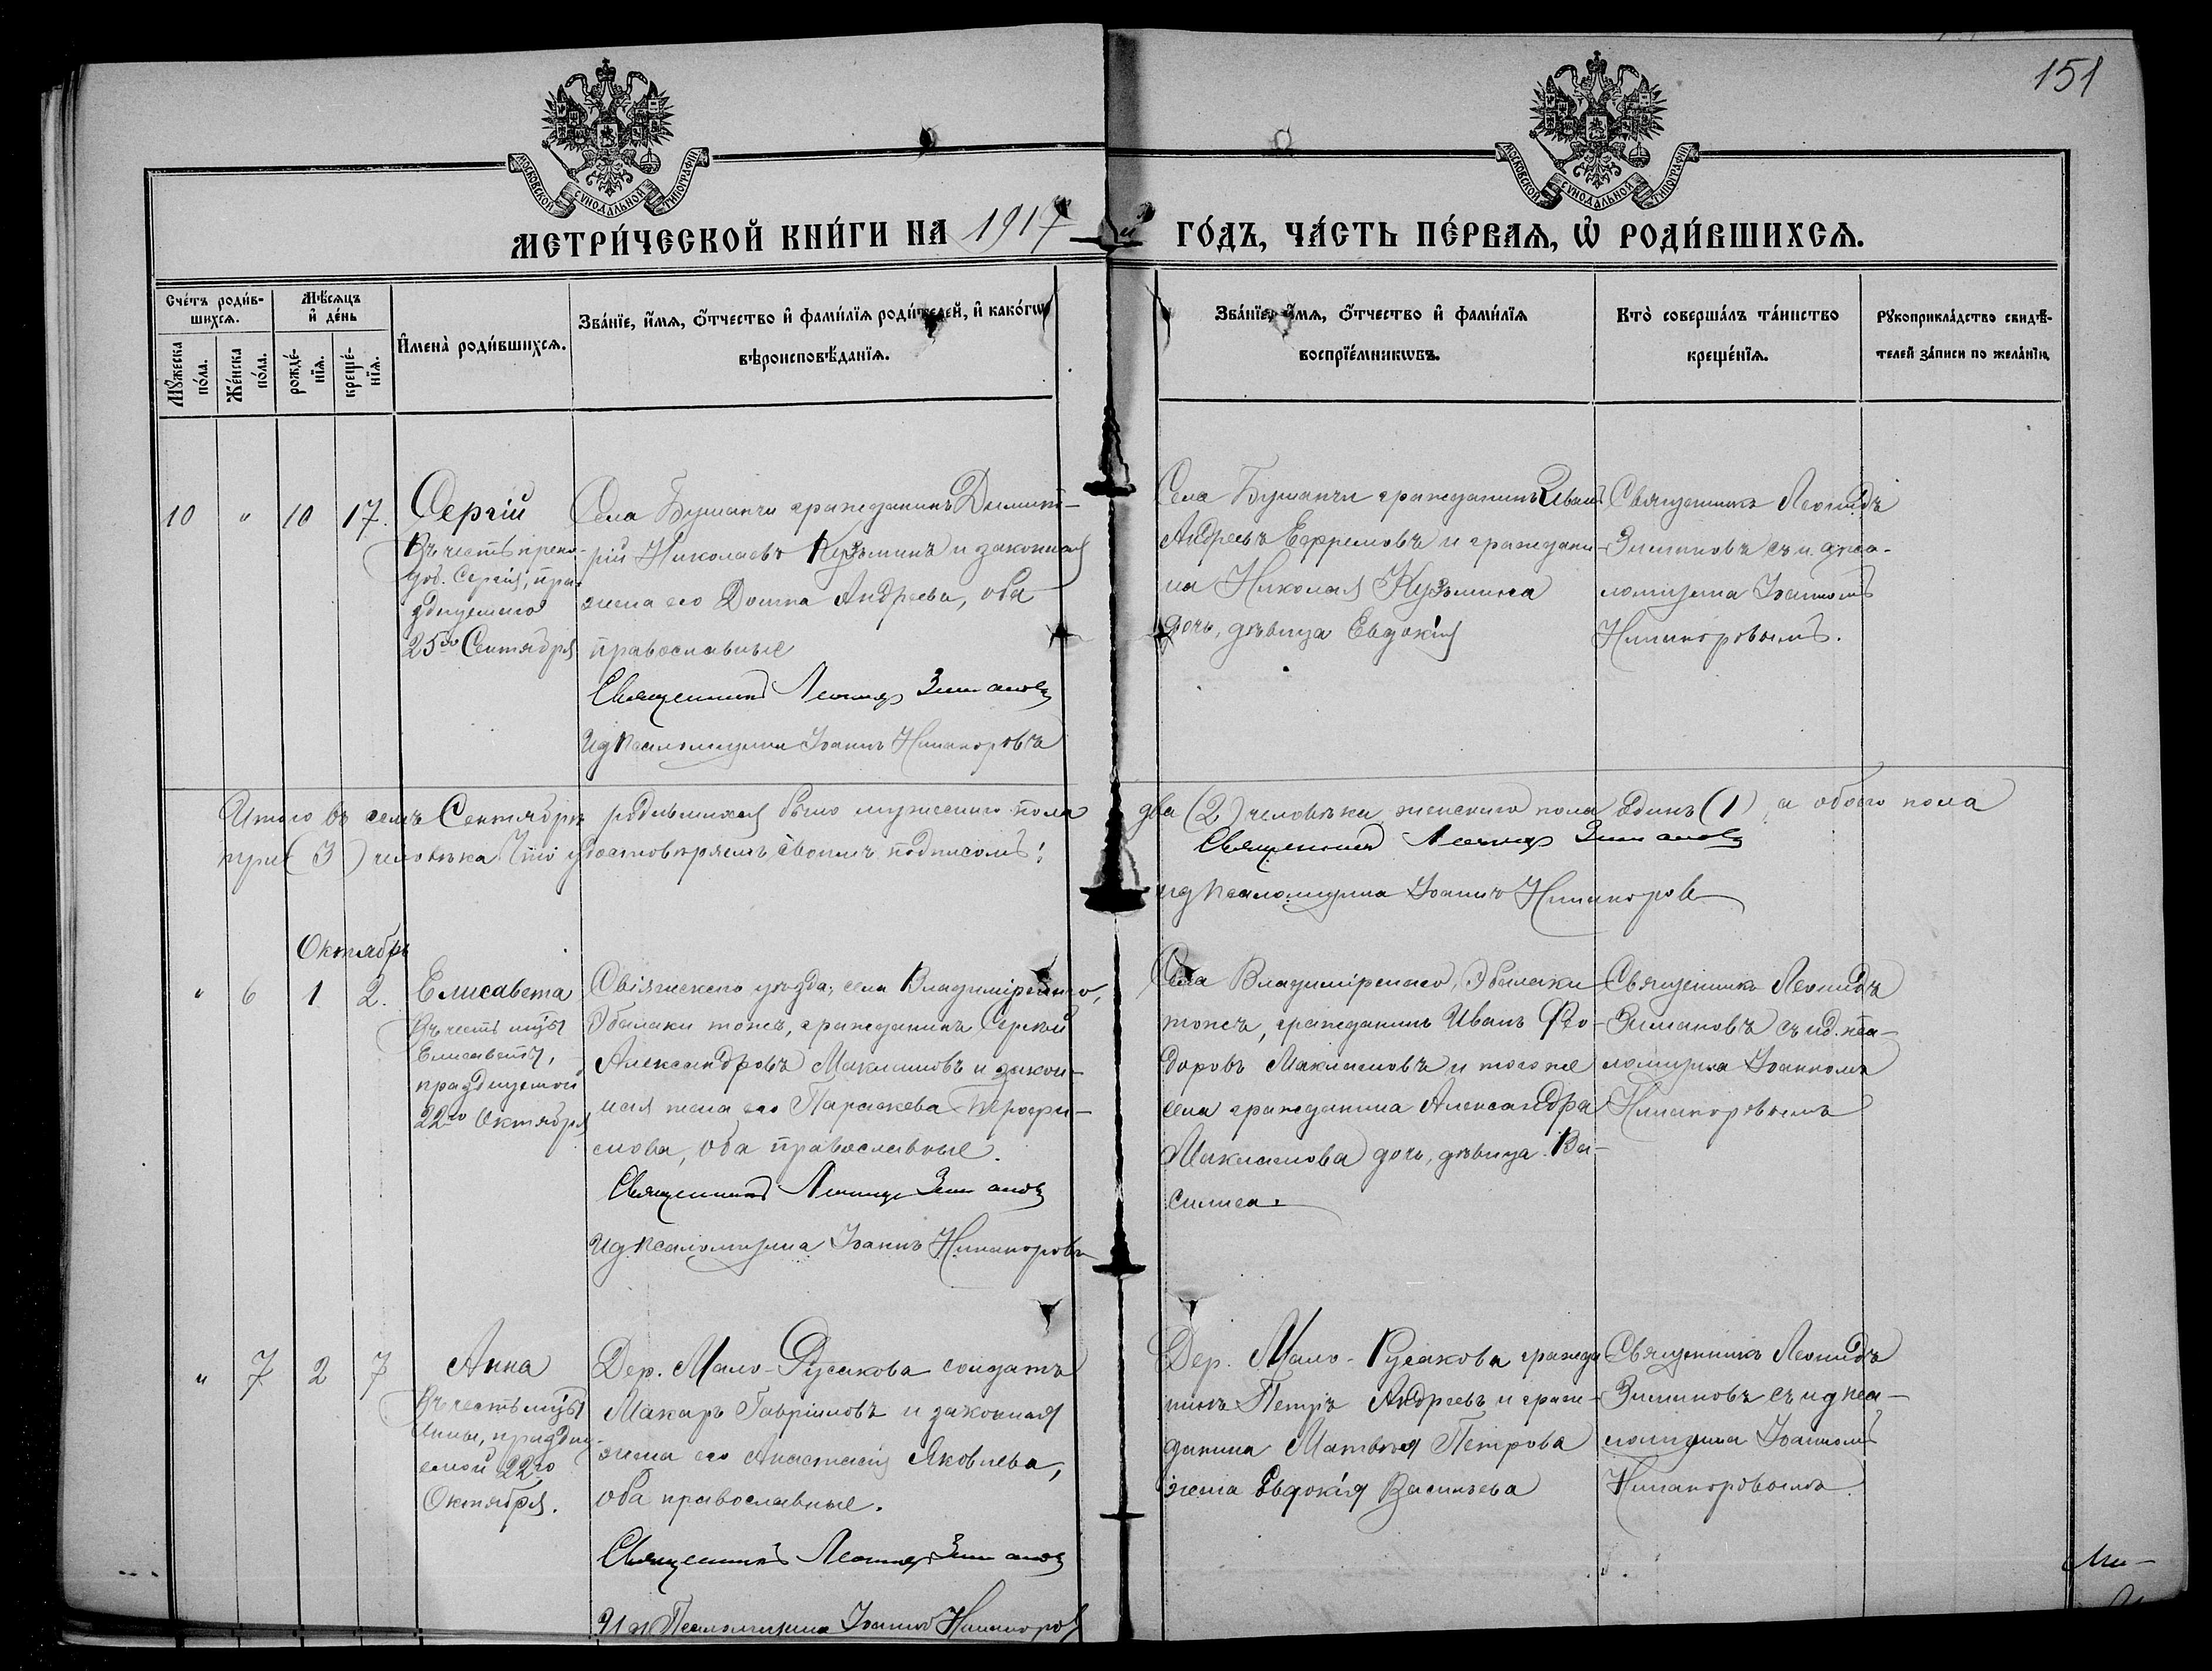 151
МОСКОВСКОЙ СУНОДАЛЬНОЙ ТИПОГРАФІИ
МОСКОВСКОЙ СУНОДАЛЬНОЙ ТИПОГРАФІИ
МЕТРИ́ЧЕСКОЙ КНИ́ГИ НА 1917 й ГО́ДЪ, ЧА́СТЬ ПЕ́РВАЯ, Ѡ҆ РОДИ́ВШИХСЯ.
Сче́тъ роди́в-
шихся.
Мѣ́сяцъ
и҆ де́нь
Мꙋ́жеска
по́ла.
Же́нска
по́ла.
рожде́-
нїя.
креще́-
нїя.
И҆мена̀ роди́вшихся.
Зва́нїе, и҆́мя, ѻ҆́тчество и҆ фами́лїя роди́телей, и҆ како́гѡ
вѣроисповѣ́данїя.
Зва́нїе, и҆́мя, ѻ҆́тчество и҆ фами́лїя
воспрїе́мникѡвъ.
Кто̀ соверша́лъ та́инство
креще́нїя.
Рꙋкоприкла́дство свидѣ́-
телей за́писи по жела́нїю.
10 " 10 17.
Сергій
Въ честь препо-
доб. Сергія, пра-
зднуемаго
25го Сентября
Села Бушанчи гражданинъ Димит-
рій Николаевъ Кузьминъ и законная
жена его Домна Андреева, оба
православные
Священникъ Леонидъ Зимановъ
Ид псаломщика Іоаннъ Никаноровъ
Села Бушанчи гражданинъ Иванъ
Андреевъ Ефремовъ и граждани-
на Николая Кузьмина
дочь, дѣвица Евдокія
Священникъ Леонидъ
Зимановъ съ и. д. пса-
ломщика Іоанномъ
Никаноровымъ.
Итого въ семъ Сентябрѣ родившихся было мужескаго пола два (2) человѣка, женскаго пола единъ (1), а обоего пола
три (3) человѣка. Что удостовѣряемъ своимъ подписомъ:
Священникъ Леонидъ Зимановъ
ид псаломщика Іоаннъ Никаноровъ
Октябрь
" 6 1 2.
Елисавета
Въ честь муч
Елисаветы,
празднуемой
22го Октября
Свіяжскаго уѣзда, села Владимірскаго,
тожъ, гражданинъ Сергѣй
Александровъ Маклаковъ и закон-
ная жена его Параскева Трофи-
мова, оба православные.
Священникъ Леонидъ Зимановъ
Ид. псаломщика Іоаннъ Никаноровъ
Села Владимірскаго,
тожъ, гражданинъ Иванъ Фео-
доровъ Маклаковъ и того же
села гражданина Александра
Маклакова дочь, дѣвица Ва-
силиса.
Священникъ Леонидъ
Зимановъ съ ид. пса-
ломщика Іоанномъ
Никаноровымъ
" 7 2 7
Анна
Въ честь муч
Анны, праздну-
емой 22го
Октября.
Дер. Мало-Русакова солдатъ
Макаръ Гавріиловъ и законная
жена его Анастасія Яковлева,
оба православные.
Священникъ Леонидъ Зимановъ
Ид Псаломщика Іоаннъ Никаноровъ
Дер. Мало-Русакова гражда
нинъ Петръ Андреевъ и граж-
данина Матвѣя Петрова
жена Евдокія Васильева
Священникъ Леонидъ
Зимановъ съ ид пса-
ломщика Іоанномъ
Никаноровымъ.